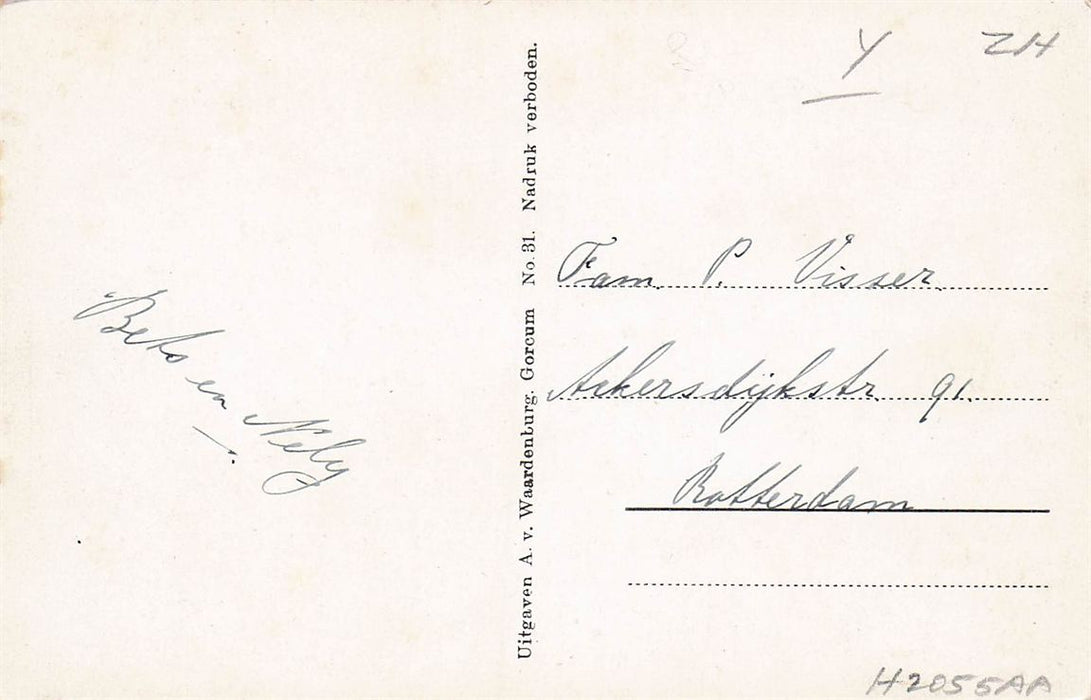 Bets en Nely
Uitgaven A. v. Waardenburg. Gorcum No. 31. Nadruk verboden.
Y ZH
Fam. P. Visser.
Ackersdijkstr. 91.
Rotterdam
H2055AA